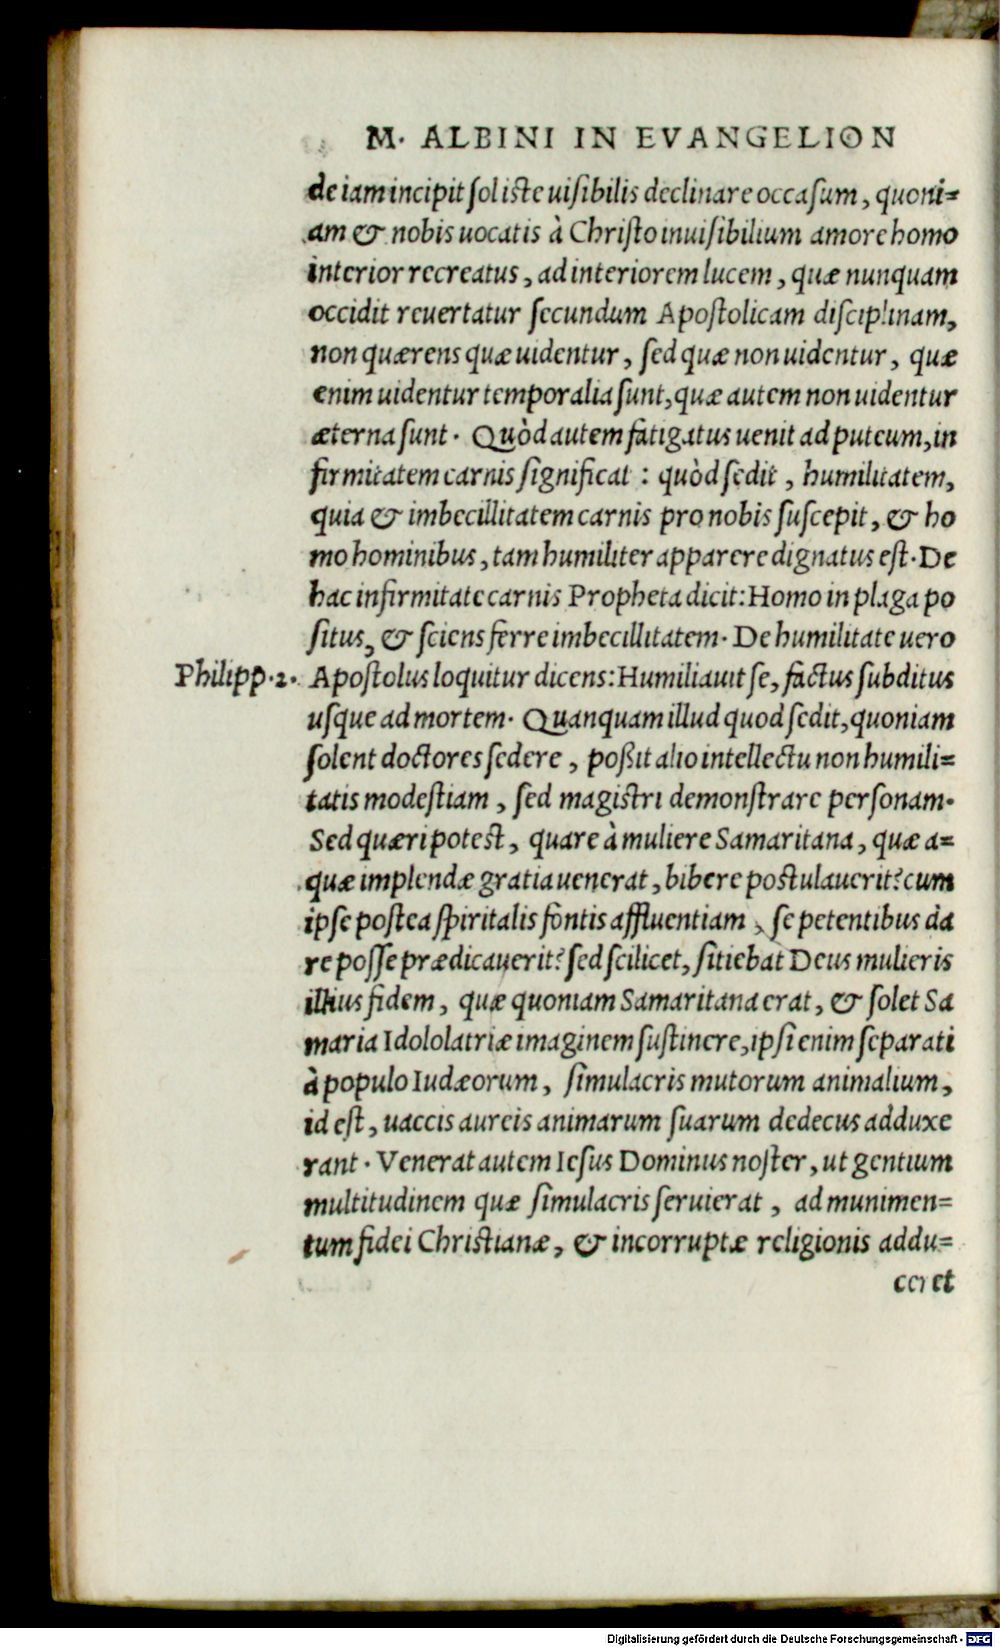 M. ALBINI IN EVANGELION
de iam incipit sol iste uisibilis declinare occasum, quoni=
am & nobis uocatis à Christo inuisibilium amore homo
interior recreatus, ad interiorem lucem, quæ nunquam
occidit reuertatur secundum Apostolicam disciplinam,
non quærens quæ uidentur, sed quæ non uidentur, quæ
enim uidentur temporalia sunt, quæ autem non uidentur
æterna sunt. Quòd autem fatigatus uenit ad puteum, in
firmitatem carnis significat: quòd sedit, humilitatem,
quia & imbecillitatem carnis pro nobis suscepit, & ho
mo hominibus, tam humiliter apparere dignatus est. De
hac infirmitate carnis Propheta dicit: Homo in plaga po
situs, & sciens ferre imbecillitatem. De humilitate uero
Philipp.2. Apostolus loquitur dicens: Humiliauit se, factus subditus
usque ad mortem. Quanquam illud quod sedit, quoniam
solent doctores sedere, poßit alio intellectu non humili=
tatis modestiam, sed magistri demonstrare personam.
Sed quæri potest, quare à muliere Samaritana, quæ a=
quæ implendæ gratia uenerat, bibere postulauerit? cum
ipse postea spiritalis fontis affluentiam, se petentibus da
re posse prædicauerit? sed scilicet, sitiebat Deus mulieris
illius fidem, quæ quoniam Samaritana erat, & solet Sa
maria Idololatriæ imaginem sustinere, ipsi enim separati
à populo Iudæorum, simulacris mutorum animalium,
id est, uaccis aureis animarum suarum dedecus adduxe
rant. Venerat autem Iesus Dominus noster, ut gentium
multitudinem quæ simulacris seruierat, ad munimen=
tum fidei Christianæ, & incorruptæ religionis addu=
ceret
Digitalisierung gefördert durch die Deutsche Forschungsgemeinschaft - DFG